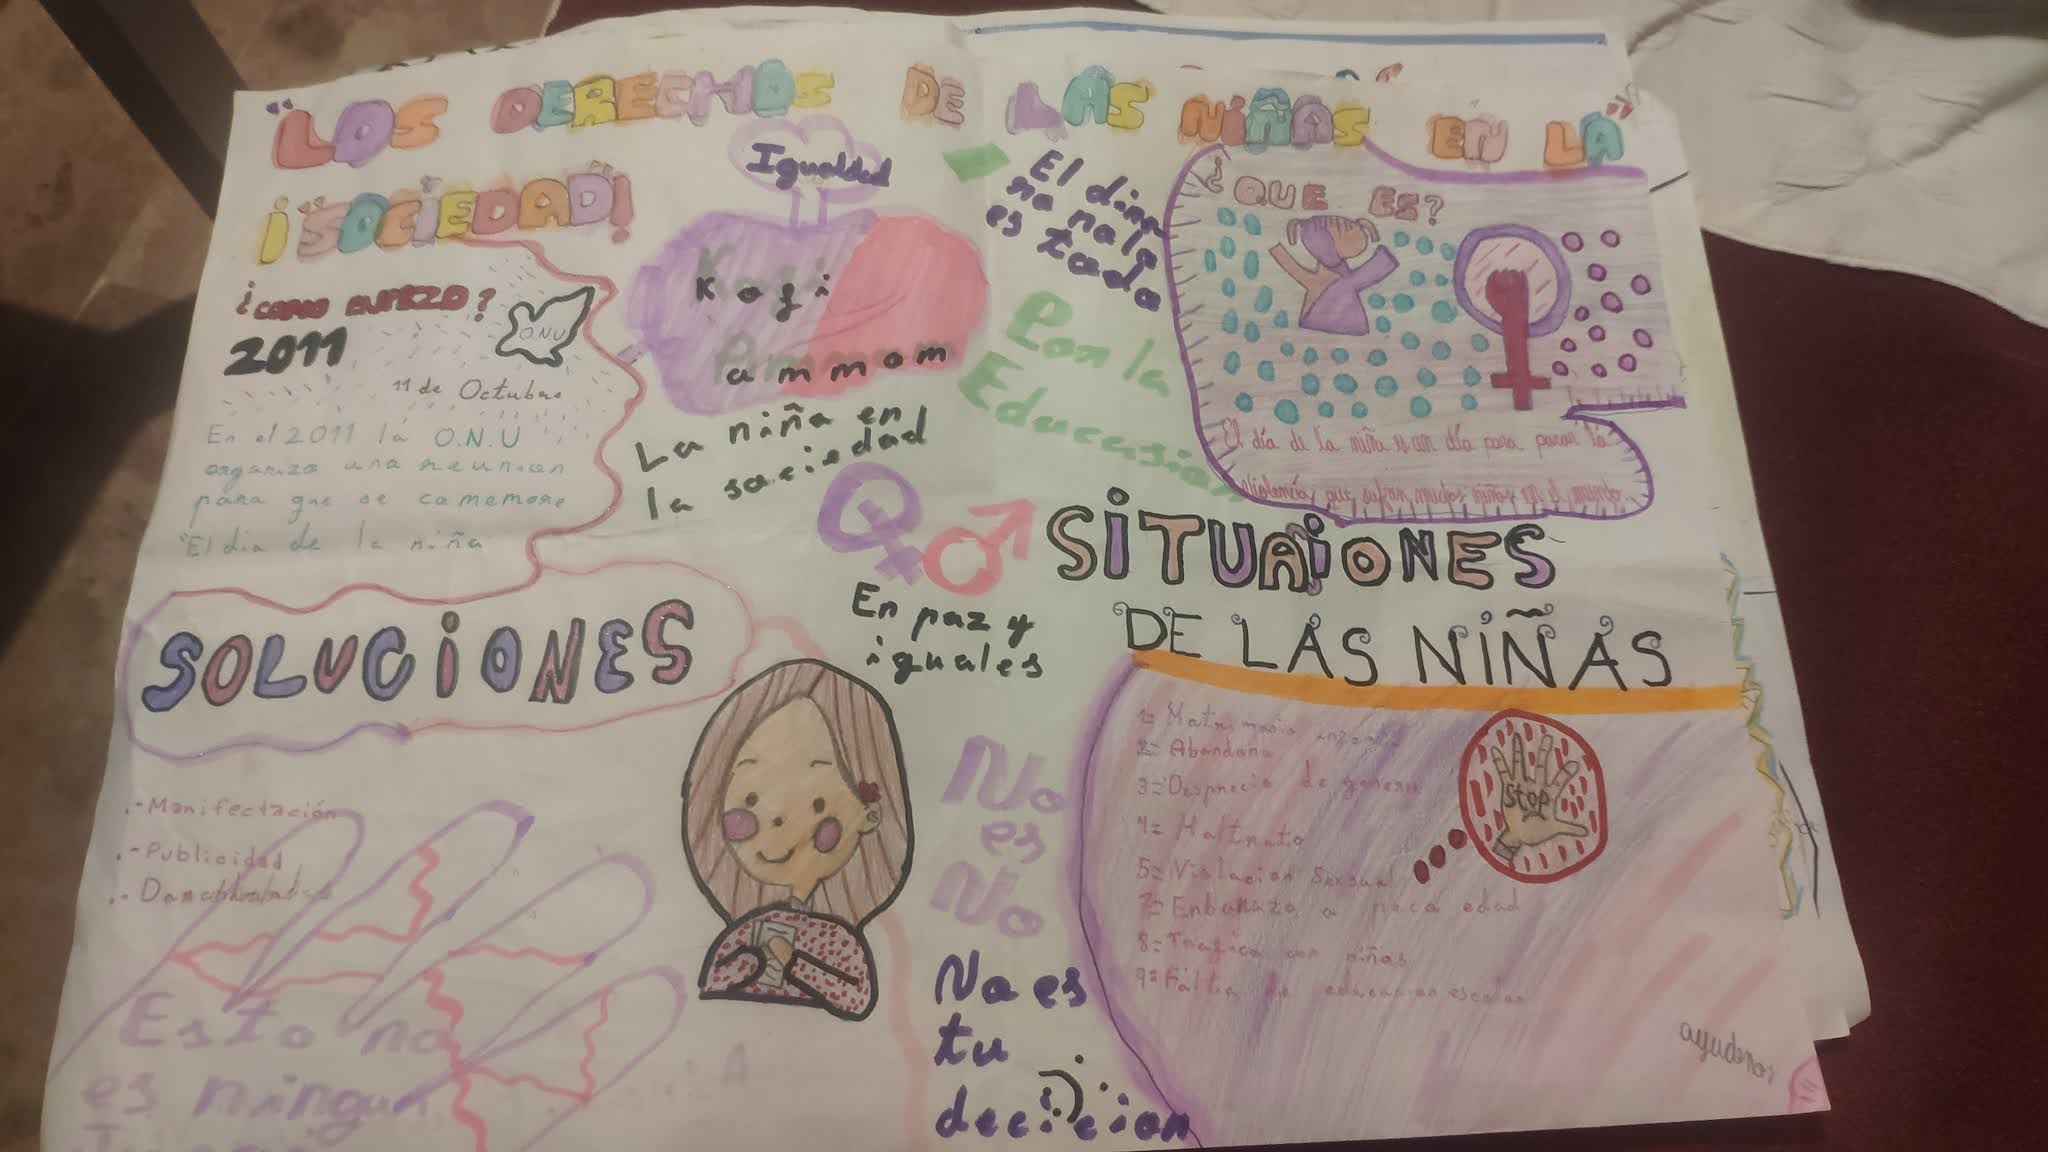 "LOS DERECHOS DE LAS NIÑAS EN LA"
¡SOCIEDAD!
¿COMO EMPEZO?
2011
O.N.U
11 de Octubre
En el 2011 la O.N.U
organizo una reunion
para que se comemore
"El dia de la niña
Igualdad
Kofi
ammom
La niña en
la sociedad
El dine
ro no lo
es todo
Por la
Educasion
¿QUE ES?
El día de la niña es un día para parar la
violencia, que sufren muchas niñas en el mundo
En paz y
iguales
SOLUCIONES
.-Manifectación
.-Publicidad
SITUAIONES
DE LAS NIÑAS
1= Matrimonio
2= Abandono
3= Desprecio de genero
4= Maltrato
5= Violacion Sexsual
7= Enbarazo a poca edad
8= Trafico con niñas
9= Falta de educacion escolar
STOP
ayudenos
No
es
No
No es
tu
decicion
Esto no
es ningun